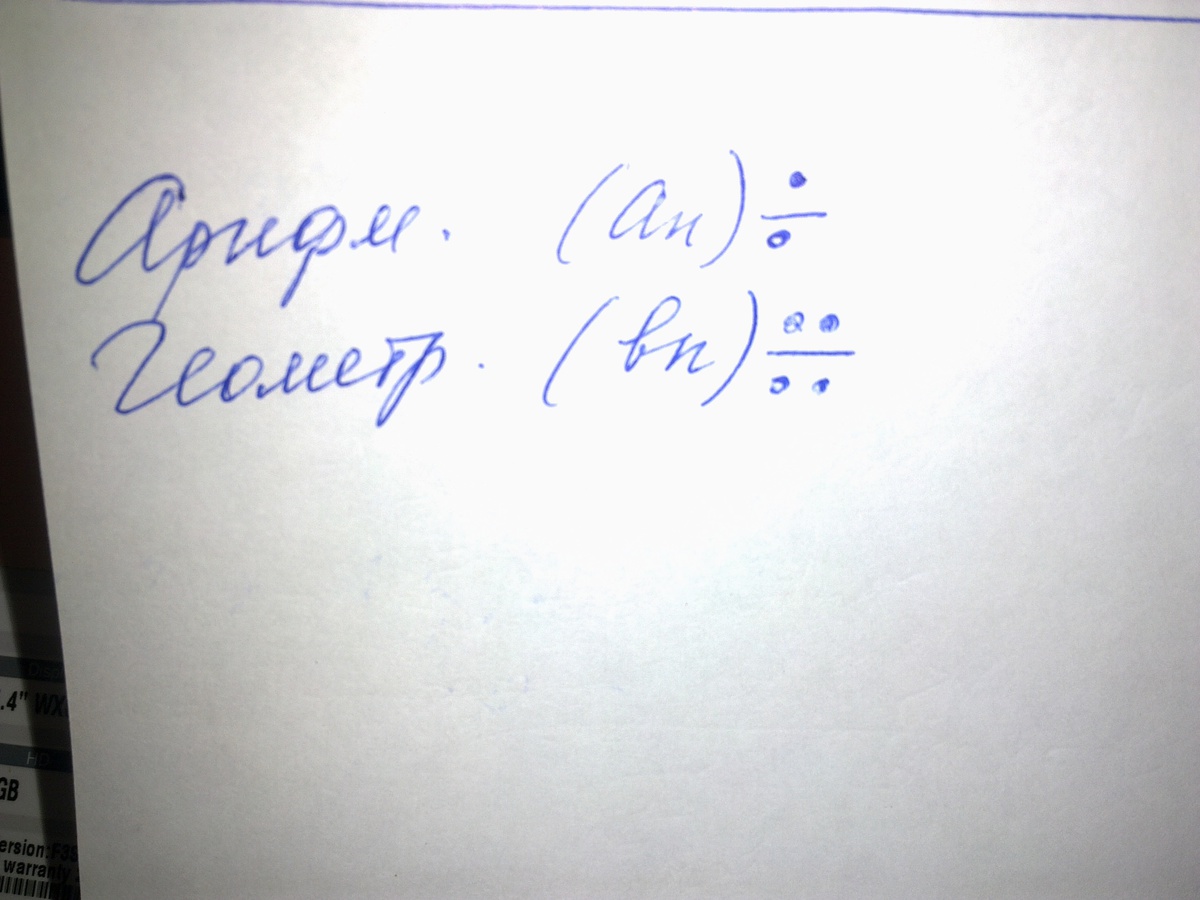 Арифм. (an) ÷
Геометр. (bn) ∺
.4" WX
HD
GB
ersion:F3
warranty